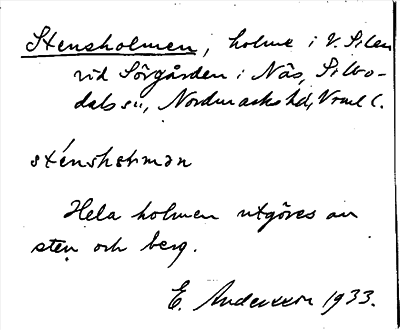 Stensholmen, holme i V. Silen
vid Sörgården i Näs, Silbo-
dals sn, Nordmarks hd, Vrml l.
sténshɷrmən
Hela holmen utgöres av
sten och berg.
E. Andersson 1933.